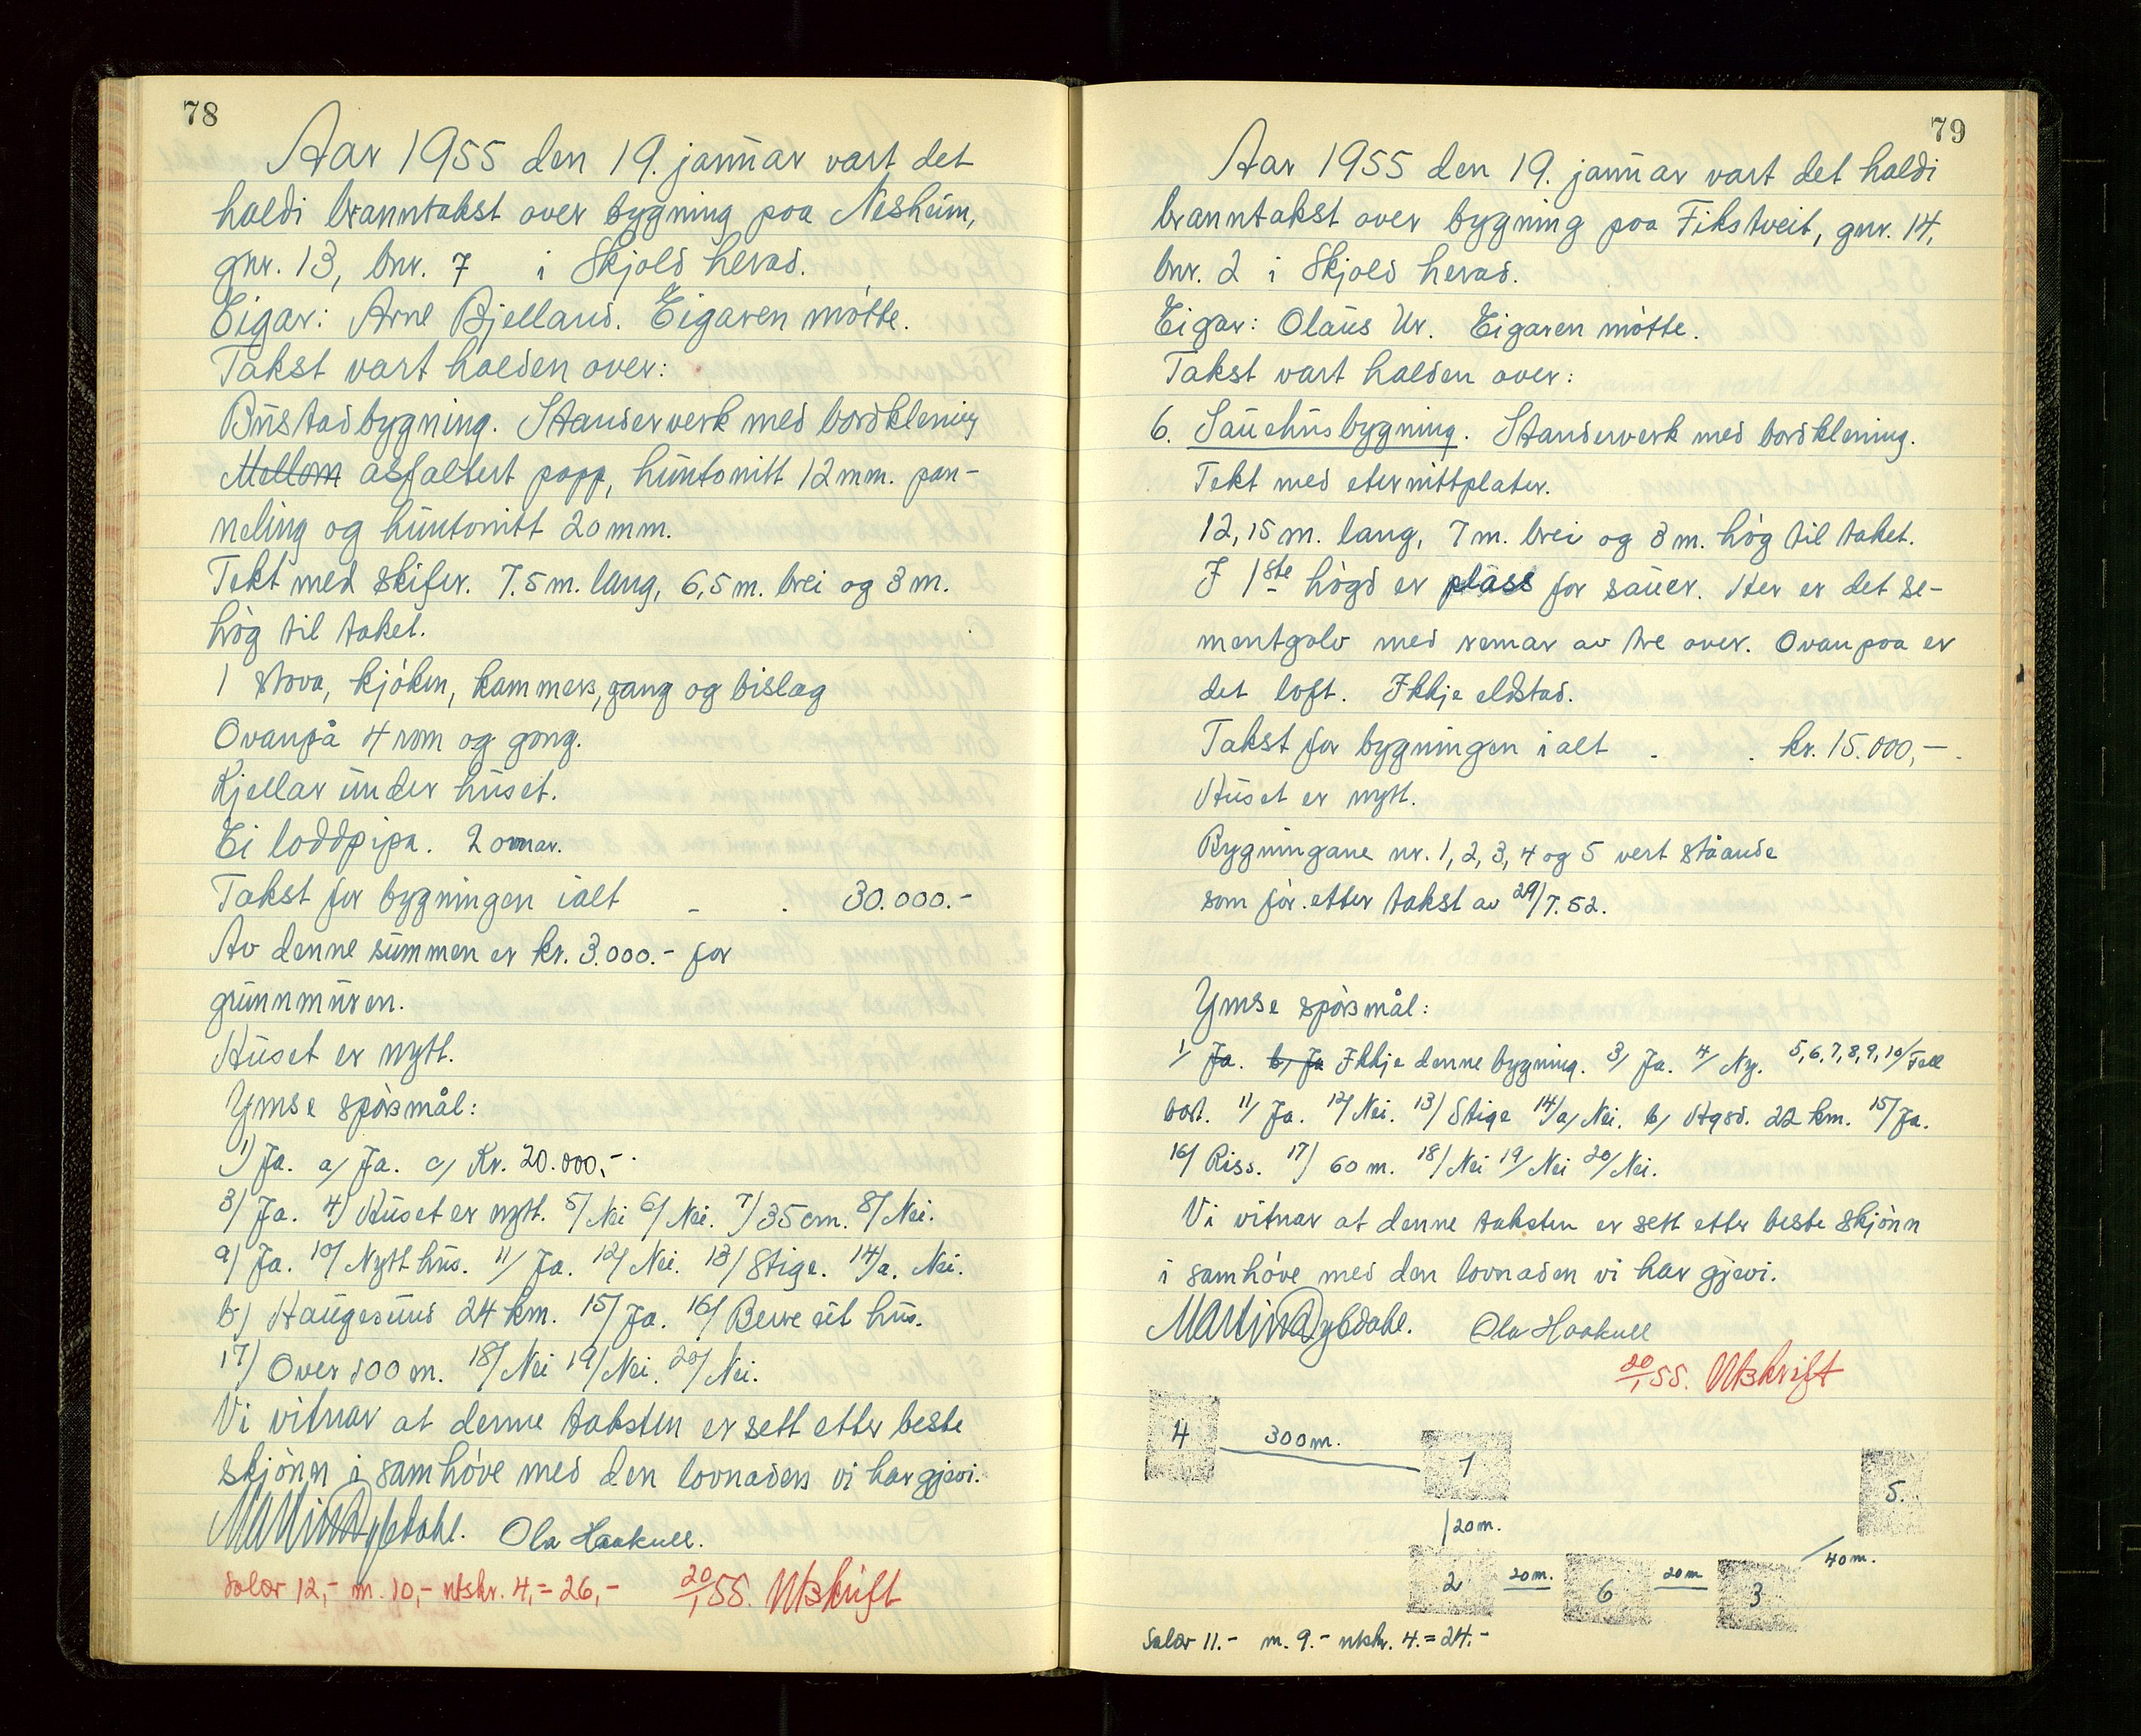 78
Aar 1955 den 19. januar vart det
haldi branntakst over bygning paa Nesheim,
gnr. 13, bnr. 7 i Skjold herad.
Eigar: Arne Bjelland. Eigaren møtte.
Takst vart halden over:
Bustadbygning. Standerverk med bordklening
Mellom asfaltert papp, huntonitt 12 mm. pan-
neling og huntonitt 20 mm.
Tekt med skifer. 7.5 m. lang, 6,5 m. brei og 3 m.
høg til taket.
1 stova, kjøken, kammers, gang og bislag
Ovanpå 4 rom og gang.
Kjellar under huset.
Ei loddpipa. 2 omnar.
Takst for bygningen ialt - . 30.000.-
Av denne summen er kr. 3.000.- for
grunnmuren.
Huset er nytt.
Ymse spørsmål:
1) Ja. a, Ja. c, Kr. 20.000,-.
3) Ja. 4) Huset er nytt. 5/ Nei 6/ Nei. 7) 35 cm. 8/ Nei.
9) Ja. 10/ Nytt hus. 11/ Ja. 12/ Nei. 13/ Stige. 14/a. Nei.
b) Haugesund 24 km. 15/ Ja. 16/ Berre eit hus.
17) Over 100 m. 18/ Nei 19/ Nei. 20/ Nei.
Vi vitnar at denne taksten er sett etter beste
skjønn i samhøve med den lovnaden vi har gjevi.
Martin Dybdahl. Ola Haakull.
Salær 12,- m. 10,- utskr. 4,= 26,- 20/1 55. Utskrift
79
Aar 1955 den 19. januar vart det haldi
branntakst over bygning paa Fikstveit, gnr. 14,
bnr. 2 i Skjold herad.
Eigar: Olaus Ur. Eigaren møtte.
Takst vart halden over:
6. Sauehusbygning. Standerverk med bordklening.
Tekt med eternittplater.
12,15 m. lang, 7 m. brei og 3 m. høg til taket.
I 1ste høgd er plass for sauer. Her er det se-
mentgolv med remar av tre over. Ovanpaa er
det loft. Ikkje eldstad.
Takst for bygningen ialt - . kr. 15.000,-.
Huset er nytt.
Bygningane nr. 1, 2, 3, 4 og 5 vert ståande
som før etter takst av 29/7.52.
Ymse spørsmål:
1/ Ja. b, Ja Ikkje denne bygning. 3/ Ja. 4/ Ny. 5,6,7,8,9,10/ Fell
bort. 11/ Ja. 12/ Nei. 13/ Stige 14/a, Nei. b, Hgsd. 22 km. 15/ Ja.
16/ Riss. 17) 60 m. 18/ Nei 19/ Nei 20/ Nei.
Vi vitnar at denne taksten er sett etter beste skjønn
i samhøve med den lovnaden vi har gjevi.
Martin Dybdahl. Ola Haakull
20/1 55. Utskrift
4 300 m. 1
5.
20 m.
40 m.
2 20 m. 6 20 m 3
Salær 11.- m. 9.- utskr. 4.= 24.-